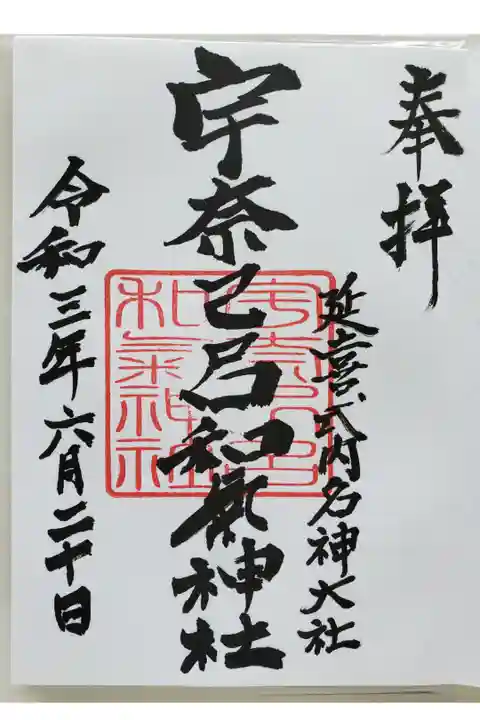 奉拝
延喜式内名神大社
宇奈己呂和氣神社
令和三年六月二十日
宇奈己呂
和氣神社